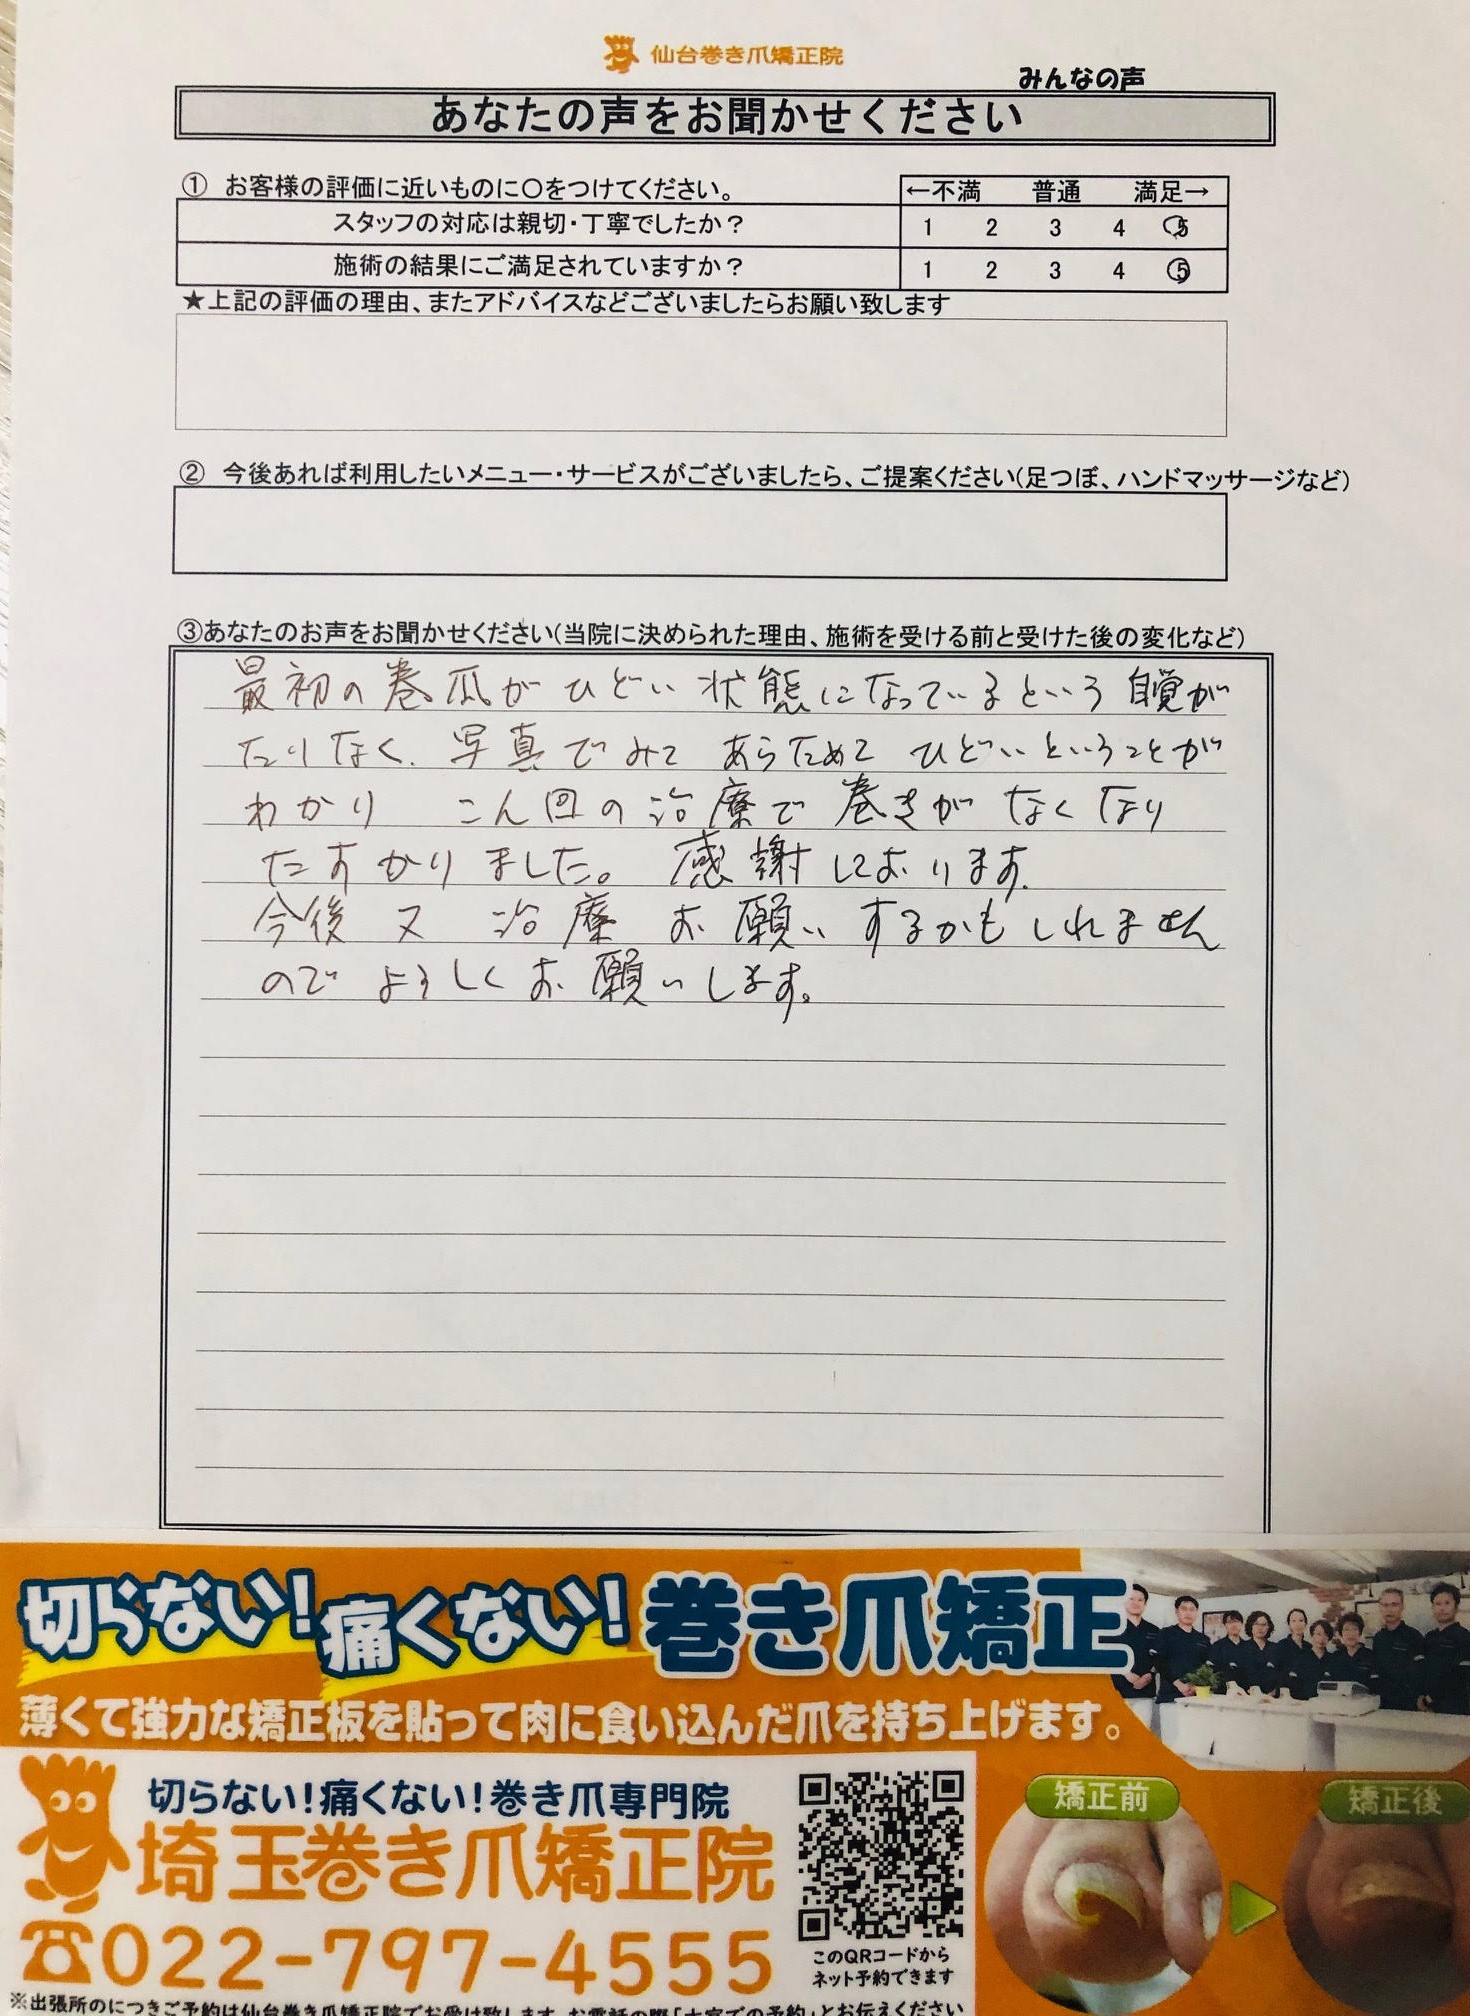 仙台巻き爪矯正院
みんなの声
あなたの声をお聞かせください
① お客様の評価に近いものに○をつけてください。
←不満 普通 満足→
スタッフの対応は親切・丁寧でしたか？ 1 2 3 4 5
施術の結果にご満足されていますか？ 1 2 3 4 5
★上記の評価の理由、またアドバイスなどございましたらお願い致します
② 今後あれば利用したいメニュー・サービスがございましたら、ご提案ください(足つぼ、ハンドマッサージなど)
③あなたのお声をお聞かせください(当院に決められた理由、施術を受ける前と受けた後の変化など)
最初の巻爪がひどい状態になっているという自覚が
たりなく、写真でみてあらためてひどいということが
わかり こん回の治療で巻きがなくなり
たすかりました。感謝しております。
今後又治療お願いするかもしれません
のでよろしくお願いします。
切らない！痛くない！巻き爪矯正
薄くて強力な矯正板を貼って肉に食い込んだ爪を持ち上げます。
切らない！痛くない！巻き爪専門院
埼玉巻き爪矯正院
☎022-797-4555
このQRコードから
ネット予約できます
矯正前
矯正後
※出張所のにつきご予約は仙台巻き爪矯正院でお受け致します。お電話の際「大宮での予約」とお伝えください